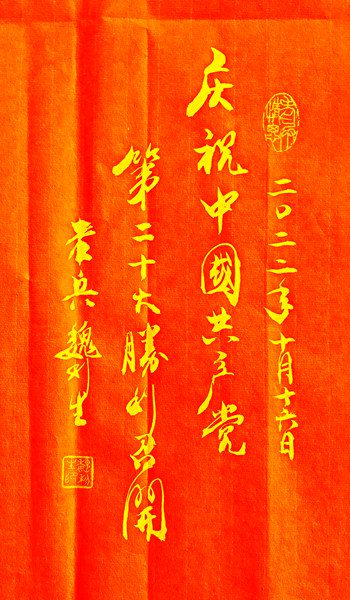 二〇二二年十月十六日
庆祝中國共产党
第二十大勝利召開
老兵魏利生